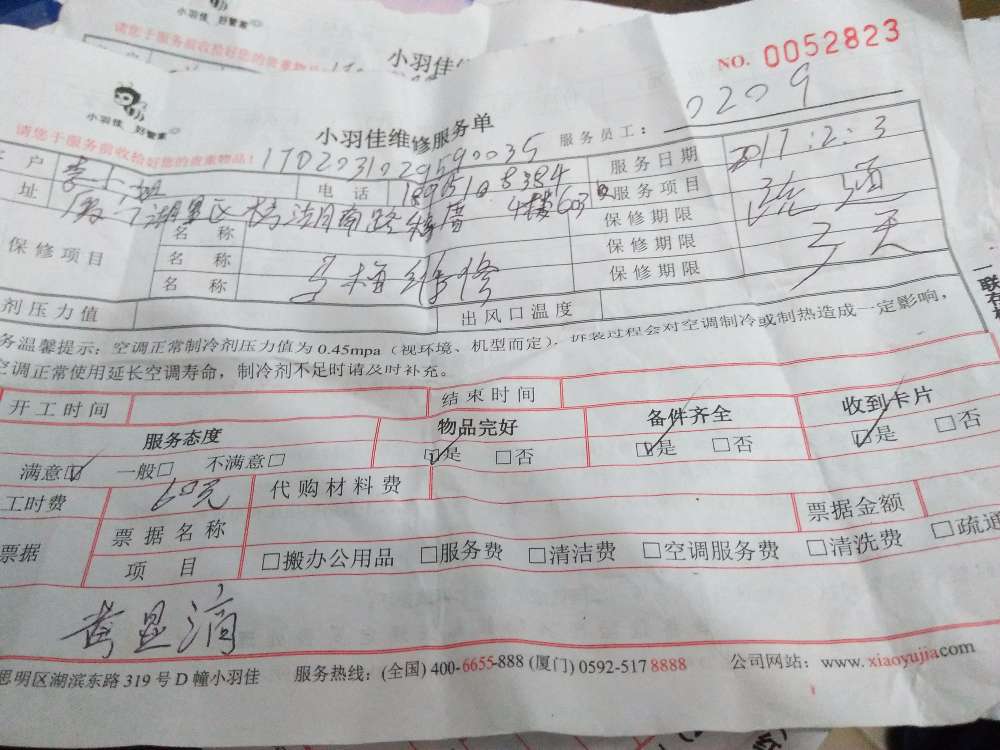 小羽佳 好管家
小羽佳维
NO. 0052823
小羽佳 好管家
小羽佳维修服务单
服务员工: 0209
请您于服务前收拾好您的贵重物品!
户
电话
服务日期 2017:2:3
址 湖里区 湖南路 4楼603
服务项目 疏通
保修项目
名称
保修期限 3天
名称
保修期限
名称 维修
保修期限
剂压力值
出风口温度
务温馨提示: 空调正常制冷剂压力值为0.45mpa (视环境、机型而定), 拆装过程会对空调制冷或制热造成一定影响,
空调正常使用延长空调寿命, 制冷剂不足时请及时补充。
开工时间
结束时间
服务态度
物品完好
备件齐全
收到卡片
满意☑ 一般□ 不满意□
☑是 □否
☑是 □否
☑是 □否
工时费 60元
代购材料费
票据
票据名称
票据金额
项目
□搬办公用品 □服务费 □清洁费 □空调服务费 □清洗费 □疏通
思明区湖滨东路319号D幢小羽佳 服务热线: (全国) 400-6655-888 (厦门) 0592-517 8888 公司网站: www.xiaoyujia.com